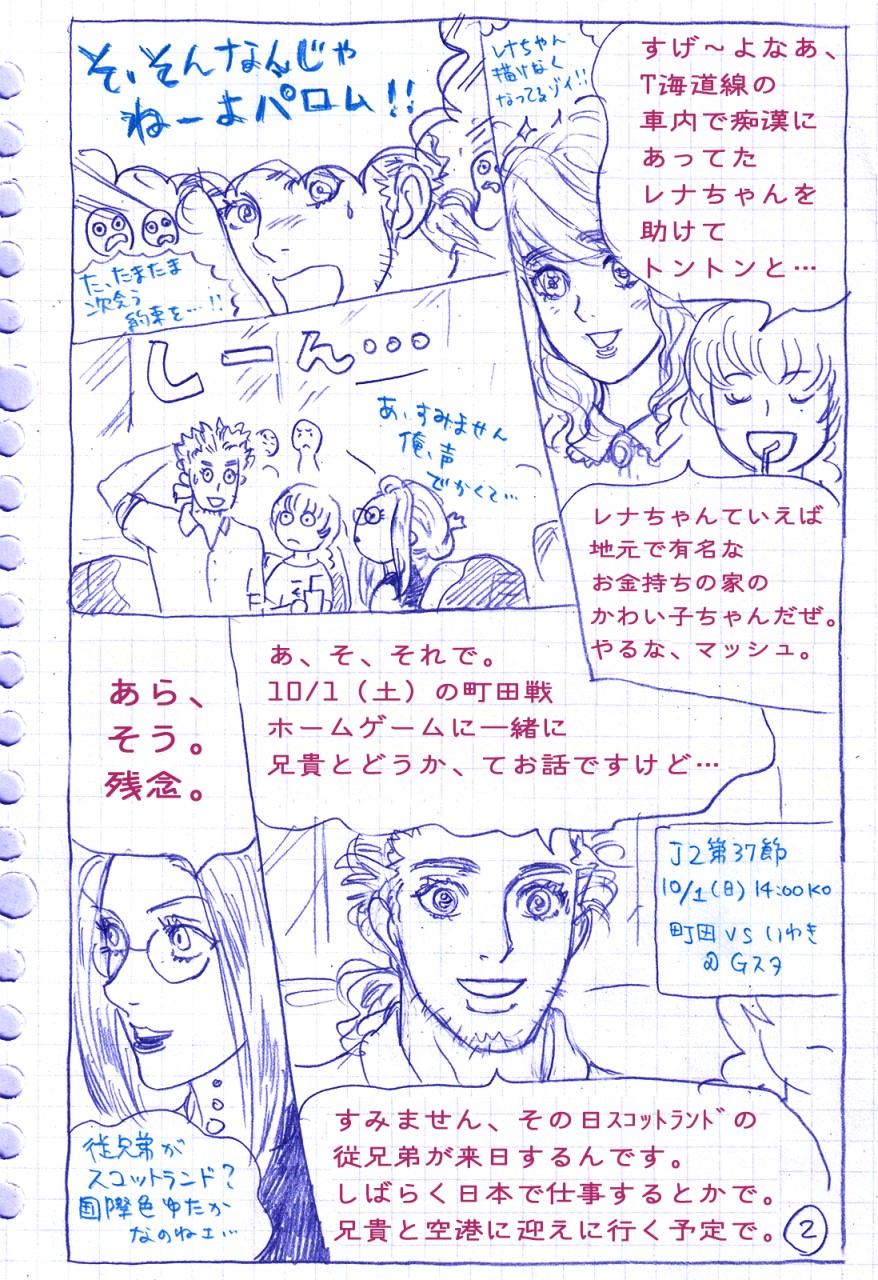 すげ〜よなあ、
T海道線の
車内で痴漢に
あってた
レナちゃんを
助けて
トントンと…
レナちゃん
描けなく
なってるゾイ!!
レナちゃんていえば
地元で有名な
お金持ちの家の
かわい子ちゃんだぜ。
やるな、マッシュ。
そ、そんなんじゃ
ねーよパロム!!
た、たまたま
次会う
約束を…!!
しーん…
あ、すみません
俺、声
でかくて…
あ、そ、それで。
10/1（土）の町田戦
ホームゲームに一緒に
兄貴とどうか、てお話ですけど…
J2第37節
10/1(日) 14:00KO
町田 VS いわき
@ Gスタ
すみません、その日ｽｺｯﾄﾗﾝﾄﾞの
従兄弟が来日するんです。
しばらく日本で仕事するとかで。
兄貴と空港に迎えに行く予定で。
あら、
そう。
残念。
従兄弟が
スコットランド?
国際色ゆたか
なのねェ…
2